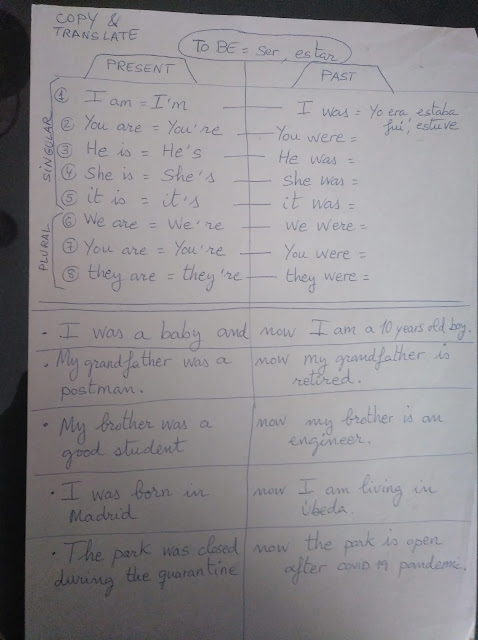 COPY &
TRANSLATE
TO BE = ser, estar
PRESENT
PAST
SINGULAR
① I am = I'm — I was = Yo era, estaba
fui, estuve
② You are = You're — You were =
③ He is = He's — He was =
④ She is = She's — She was =
⑤ it is = it's — it was =
PLURAL
⑥ We are = We're — we were =
⑦ You are = You're — You were =
⑧ they are = they're — they were =
· I was a baby and now I am a 10 years old boy.
· My grandfather was a
postman.
now my grandfather is
retired.
· My brother was a
good student
now my brother is an
engineer.
· I was born in
Madrid
now I am living in
Úbeda.
· The park was closed
during the quarantine
now the park is open
after covid 19 pandemic.